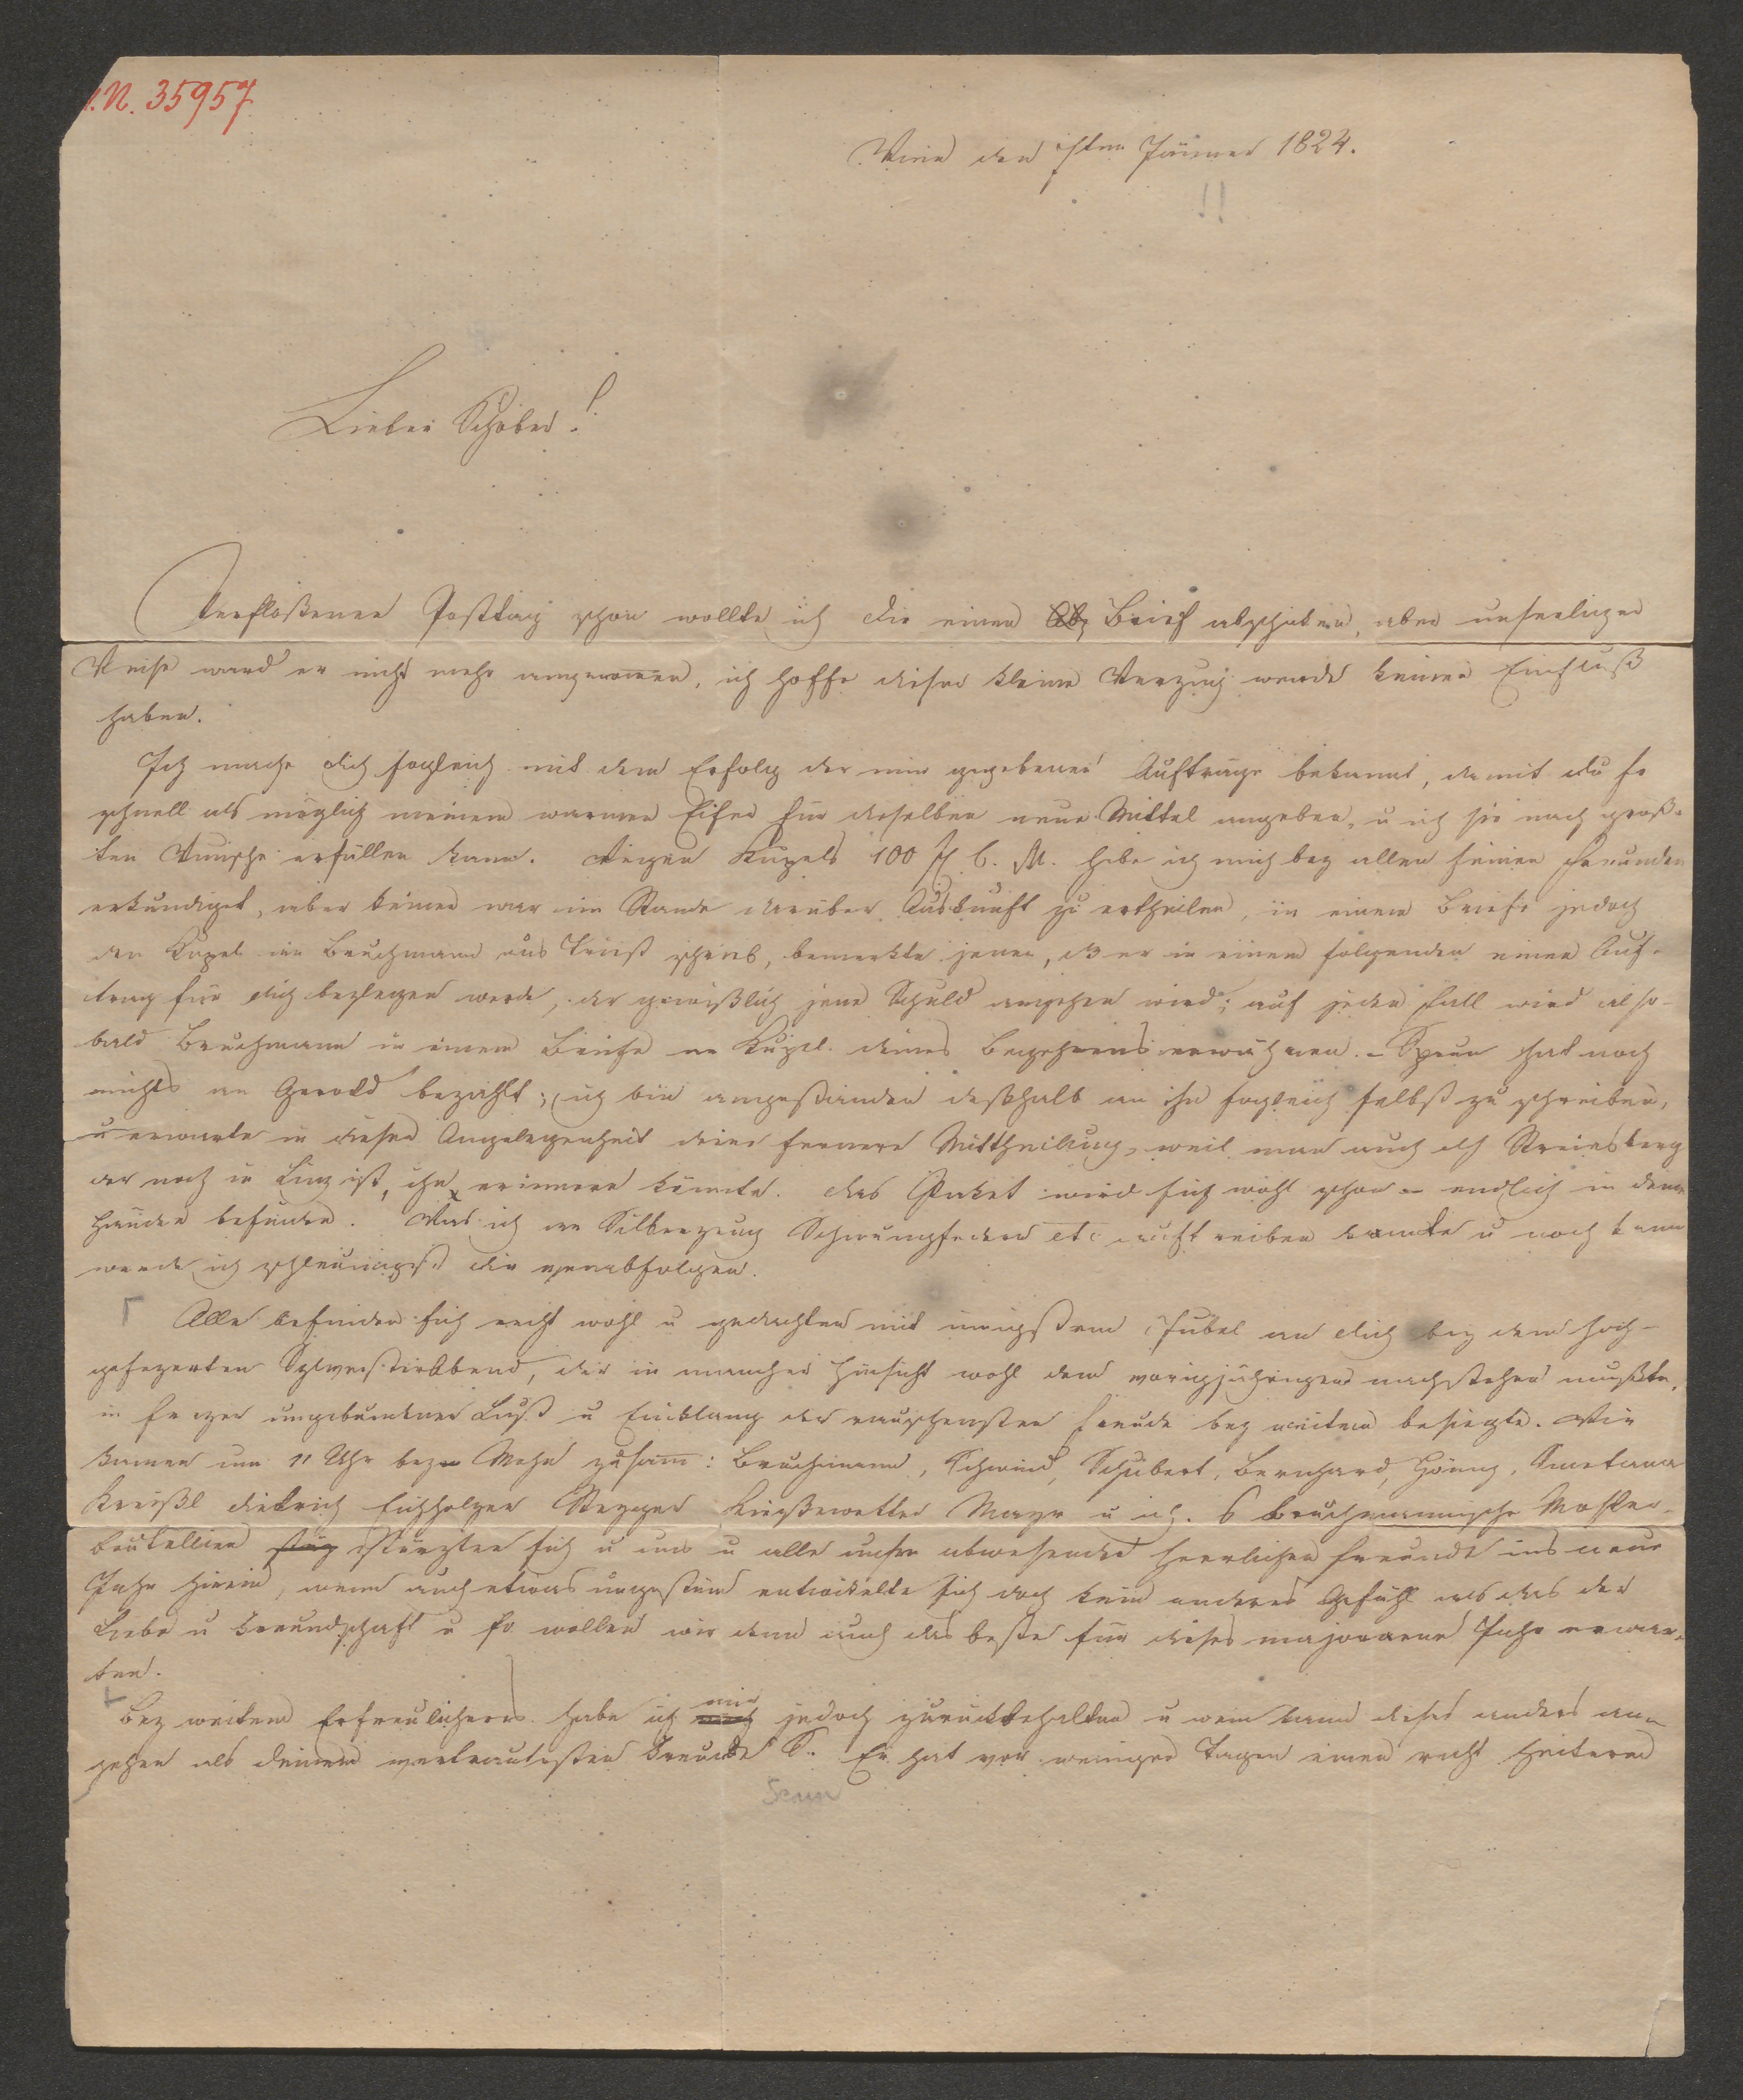 I.N. 35957
Wien den 1sten Jänner 1824.
!!
Lieber Schober!
Verflossenen Posttag schon wollte ich dir einen Brief abschicken, aber unseeliger
Weise ward er nicht mehr angenomen, ich hoffe dieser kleine Verzug werde keinen Einfluß
haben.
Ich mache dich sogleich mit dem Erfolg der mir gegebenen Aufträge bekannt, damit du so
schnell als möglich meinem warmen Eifer für dieselben neue Mittel angeben, u ich sie nach größ-
ten Wunsche erfüllen kann. Wegen Kupels 100 fl C. M. habe ich mich bey allen seinen Freunden
erkundiget, aber keiner war im Stande darüber Auskunft zu ertheilen, in einem Briefe jedoch
den Kupel an Bruchmann aus Triest schrieb, bemerkte jener, dß er in einem folgenden einen Auf-
trag für dich beylegen werde, der gewißlich jene Schuld angehen wird; auf jeden Fall wird also-
bald Bruchmann in einem Briefe an Kupel deines Begehrens erwähnen. – Spaun hat noch
nichts an Gerold bezahlt; ich bin angestanden deßhalb an ihn sogleich selbst zu schreiben,
u erwarte in dieser Angelegenheit deine fernere Mittheilung, weil man auch dch Streinsberg
der noch in Linz ist, ihn erinnern könnte. Das Paket wird sich wohl schon – endlich in deinen
Händen befinden. Was ich an Silberzeug Schwungfedern etc auftreiben konnte u noch kann
werde ich schleunigst dir verabfolgen.
Alle befinden sich recht wohl u gedachten mit innigstem Jubel an dich bey dem hoch-
gefeyerten Sylvesterabbend, der in mancher Hinsicht wohl dem vorigjährigen nachstehen mußte,
in freyer ungebundener Lust u Einklang der rauschensten Freude bey weitem besiegte. Wir
kamen um 11 Uhr bey Mohn zusam: Bruchmann, Schwind, Schubert, Bernhard, Hönig, Smetana
Kreißl Dietrich Eichholzer Steyger Kießewetter Mayr u ich. 6 Bruchmannische Mosler-
bouteillien stürzten sich u uns u alle unsre abwesenden herrlichen Freunde ins neue
Jahr hinein, wenn auch etwas ungestüm entwickelte sich doch kein anderes Gefühl als das der
Liebe u Freundschaft u so wollen wir denn auch das beste für dieses majorenne Jahr erwar-
ten.
Bey weitem Erfreulicheres habe ich mir jedoch zurückbehalten u wem kann dieses anders an-
gehen als deinem vertrautesten Freunde S. Er hat vor weniger Tagen einen recht heiteren
Senn